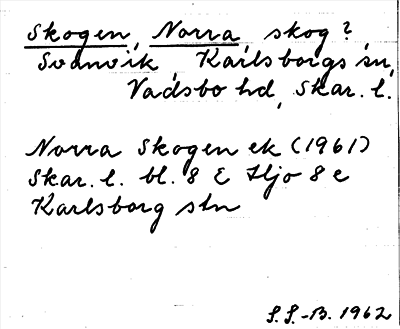 Skogen, Norra, skog?
Svanvik, Karlsborgs sn,
Vadsbo hd, Skar. l.
Norra Skogen ek (1961)
Skar. l. bl. 8 E Hjo 8 e
Karlsborg stn
S.S-B. 1962